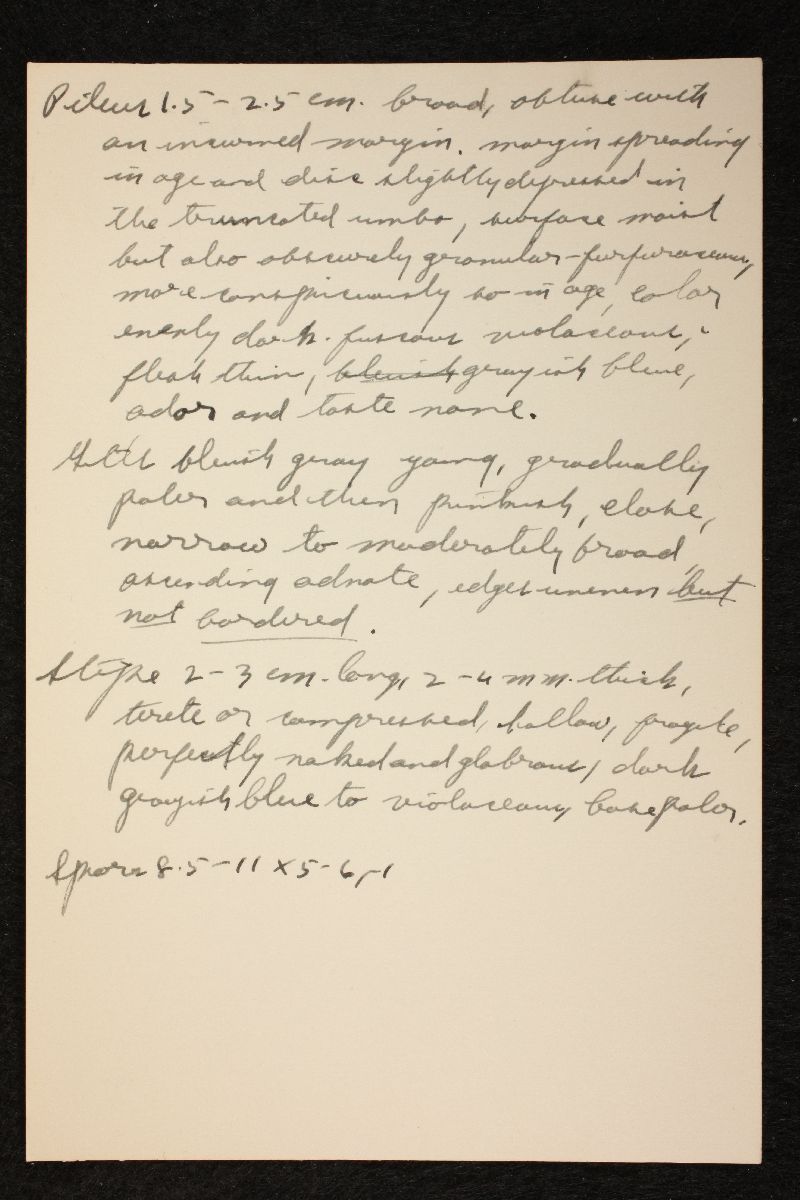 Pileus 1.5 - 2.5 cm. broad, obtuse with
an incurved margin. margin spreading
in age and disc slightly depressed in
the truncated umbo, surface moist
but also obscurely granular-furfuraceous,
more conspicuously so in age, color
evenly dark fuscous violaceous,
flesh thin, bluish grayish blue,
odor and taste none.
Gills bluish gray young, gradually
paler and then pinkish, close,
narrow to moderately broad,
ascending adnate, edges uneven but
not bordered.
Stipe 2 - 3 cm. long, 2 - 4 mm. thick,
terete or compressed, hollow, fragile,
perfectly naked and glabrous, dark
grayish blue to violaceous, base paler.
Spores 8.5 - 11 x 5 - 6,